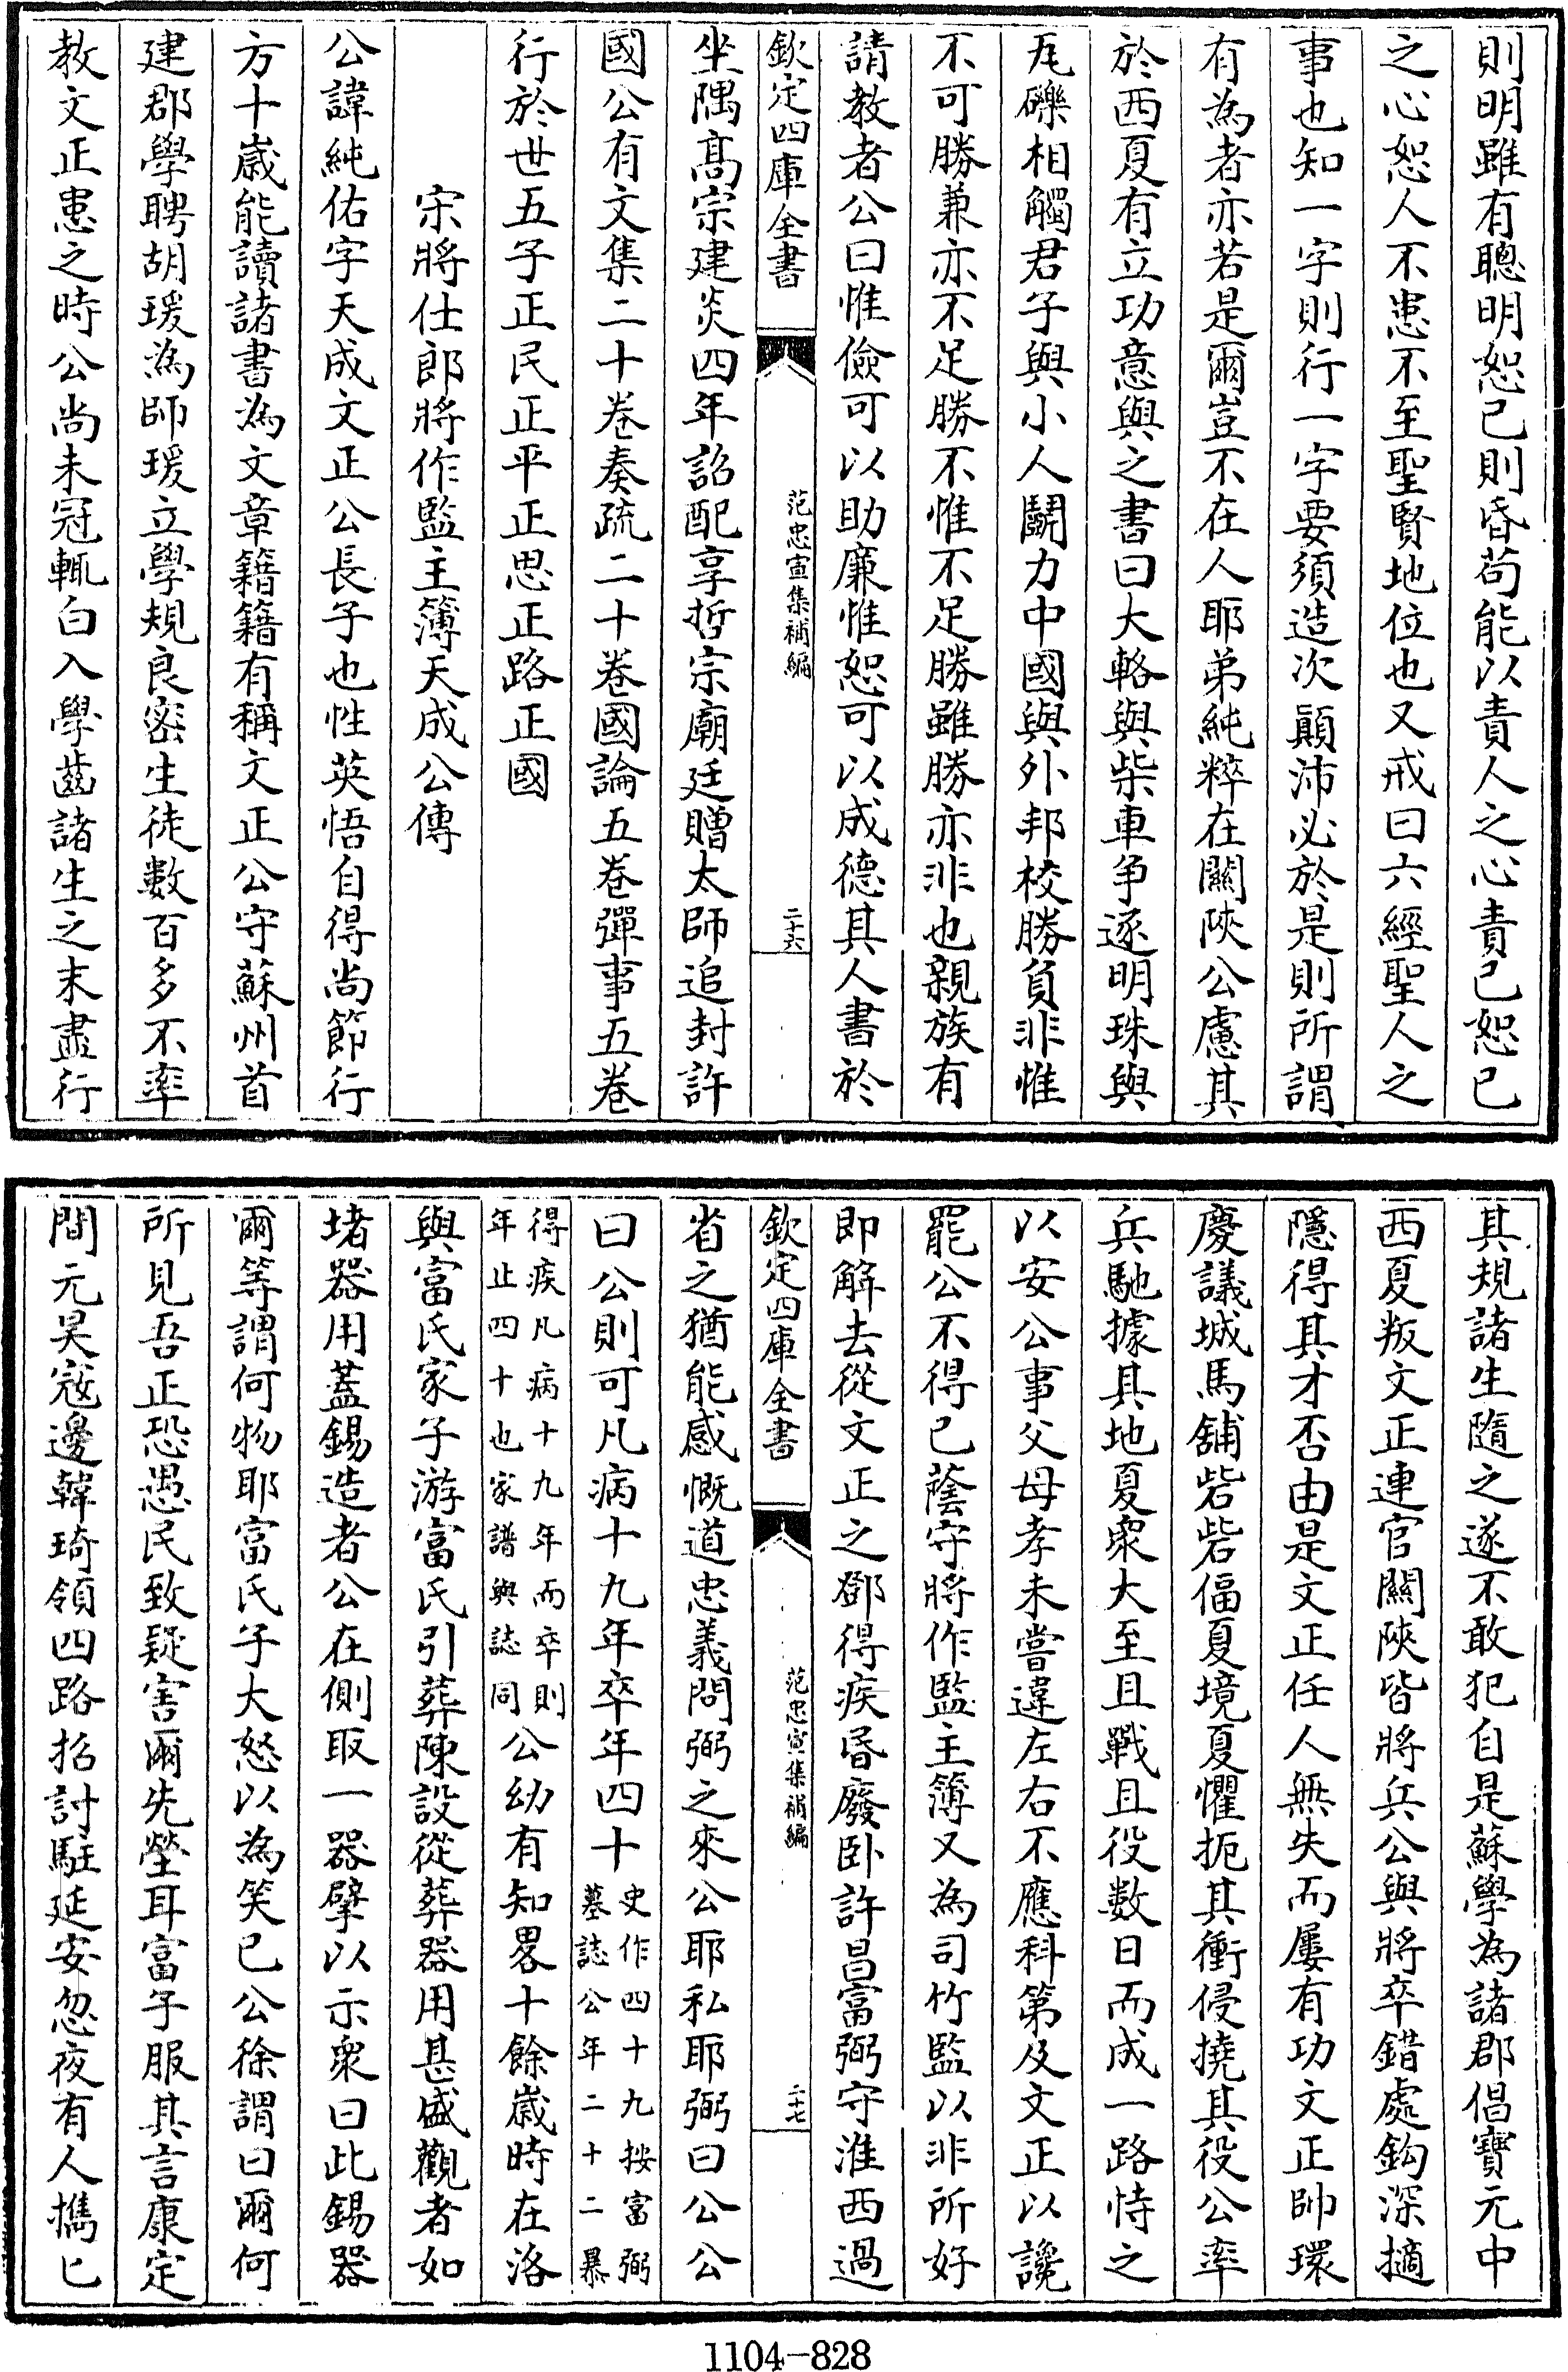 則明雖有聰明恕己則昏苟能以責人之心責己恕己
之心恕人不患不至聖賢地位也又戒曰六經聖人之
事也知一字則行一字要須造次顛沛必於是則所謂
有為者亦若是爾豈不在人耶弟純粹在關陝公慮其
於西夏有立功意與之書曰大輅與柴車争逐明珠與
瓦礫相觸君子與小人鬭力中國與外邦校勝負非惟
不可勝兼亦不足勝不惟不足勝雖勝亦非也親族有
請教者公曰惟儉可以助廉惟恕可以成德其人書於
欽定四庫全書
范忠宣集補編
二十六
坐隅髙宗建炎四年詔配享哲宗廟廷贈太師追封許
國公有文集二十卷奏疏二十卷國論五卷彈事五卷
行於世五子正民正平正思正路正國
宋將仕郎將作監主簿天成公傳
公諱純佑字天成文正公長子也性英悟自得尚節行
方十歲能讀諸書為文章籍籍有稱文正公守蘇州首
建郡學聘胡瑗為師瑗立學規良密生徒數百多不率
教文正患之時公尚未冠輒白入學齒諸生之末盡行
其規諸生隨之遂不敢犯自是蘇學為諸郡倡寶元中
西夏叛文正連官關陝皆將兵公與將卒錯處鈎深擿
隱得其才否由是文正任人無失而屢有功文正帥環
慶議城馬舖砦砦偪夏境夏懼扼其衝侵撓其役公率
兵馳據其地夏衆大至且戰且役数日而成一路恃之
以安公事父母孝未嘗違左右不應科第及文正以讒
罷公不得已蔭守將作監主簿又為司竹監以非所好
即解去從文正之鄧得疾昏廢卧許昌富弼守淮西過
欽定四庫全書
范忠宣集補編
二十七
省之猶能感慨道忠義問弼之來公耶私耶弼曰公公
曰公則可凡病十九年卒年四十史作四十九按富弼墓誌公年二十二暴
得疾凡病十九年而卒則年止四十也家譜與誌同公幼有知畧十餘歲時在洛
與富氏家子游富氏引葬陳設從葬器用甚盛觀者如
堵器用蓋錫造者公在側取一器擘以示衆曰此錫器
爾等謂何物耶富氏子大怒以為笑已公徐謂曰爾何
所見吾正恐愚民致疑害爾先塋耳富子服其言康定
間元昊寇邊韓琦領四路招討駐延安忽夜有人擕匕
1104-828